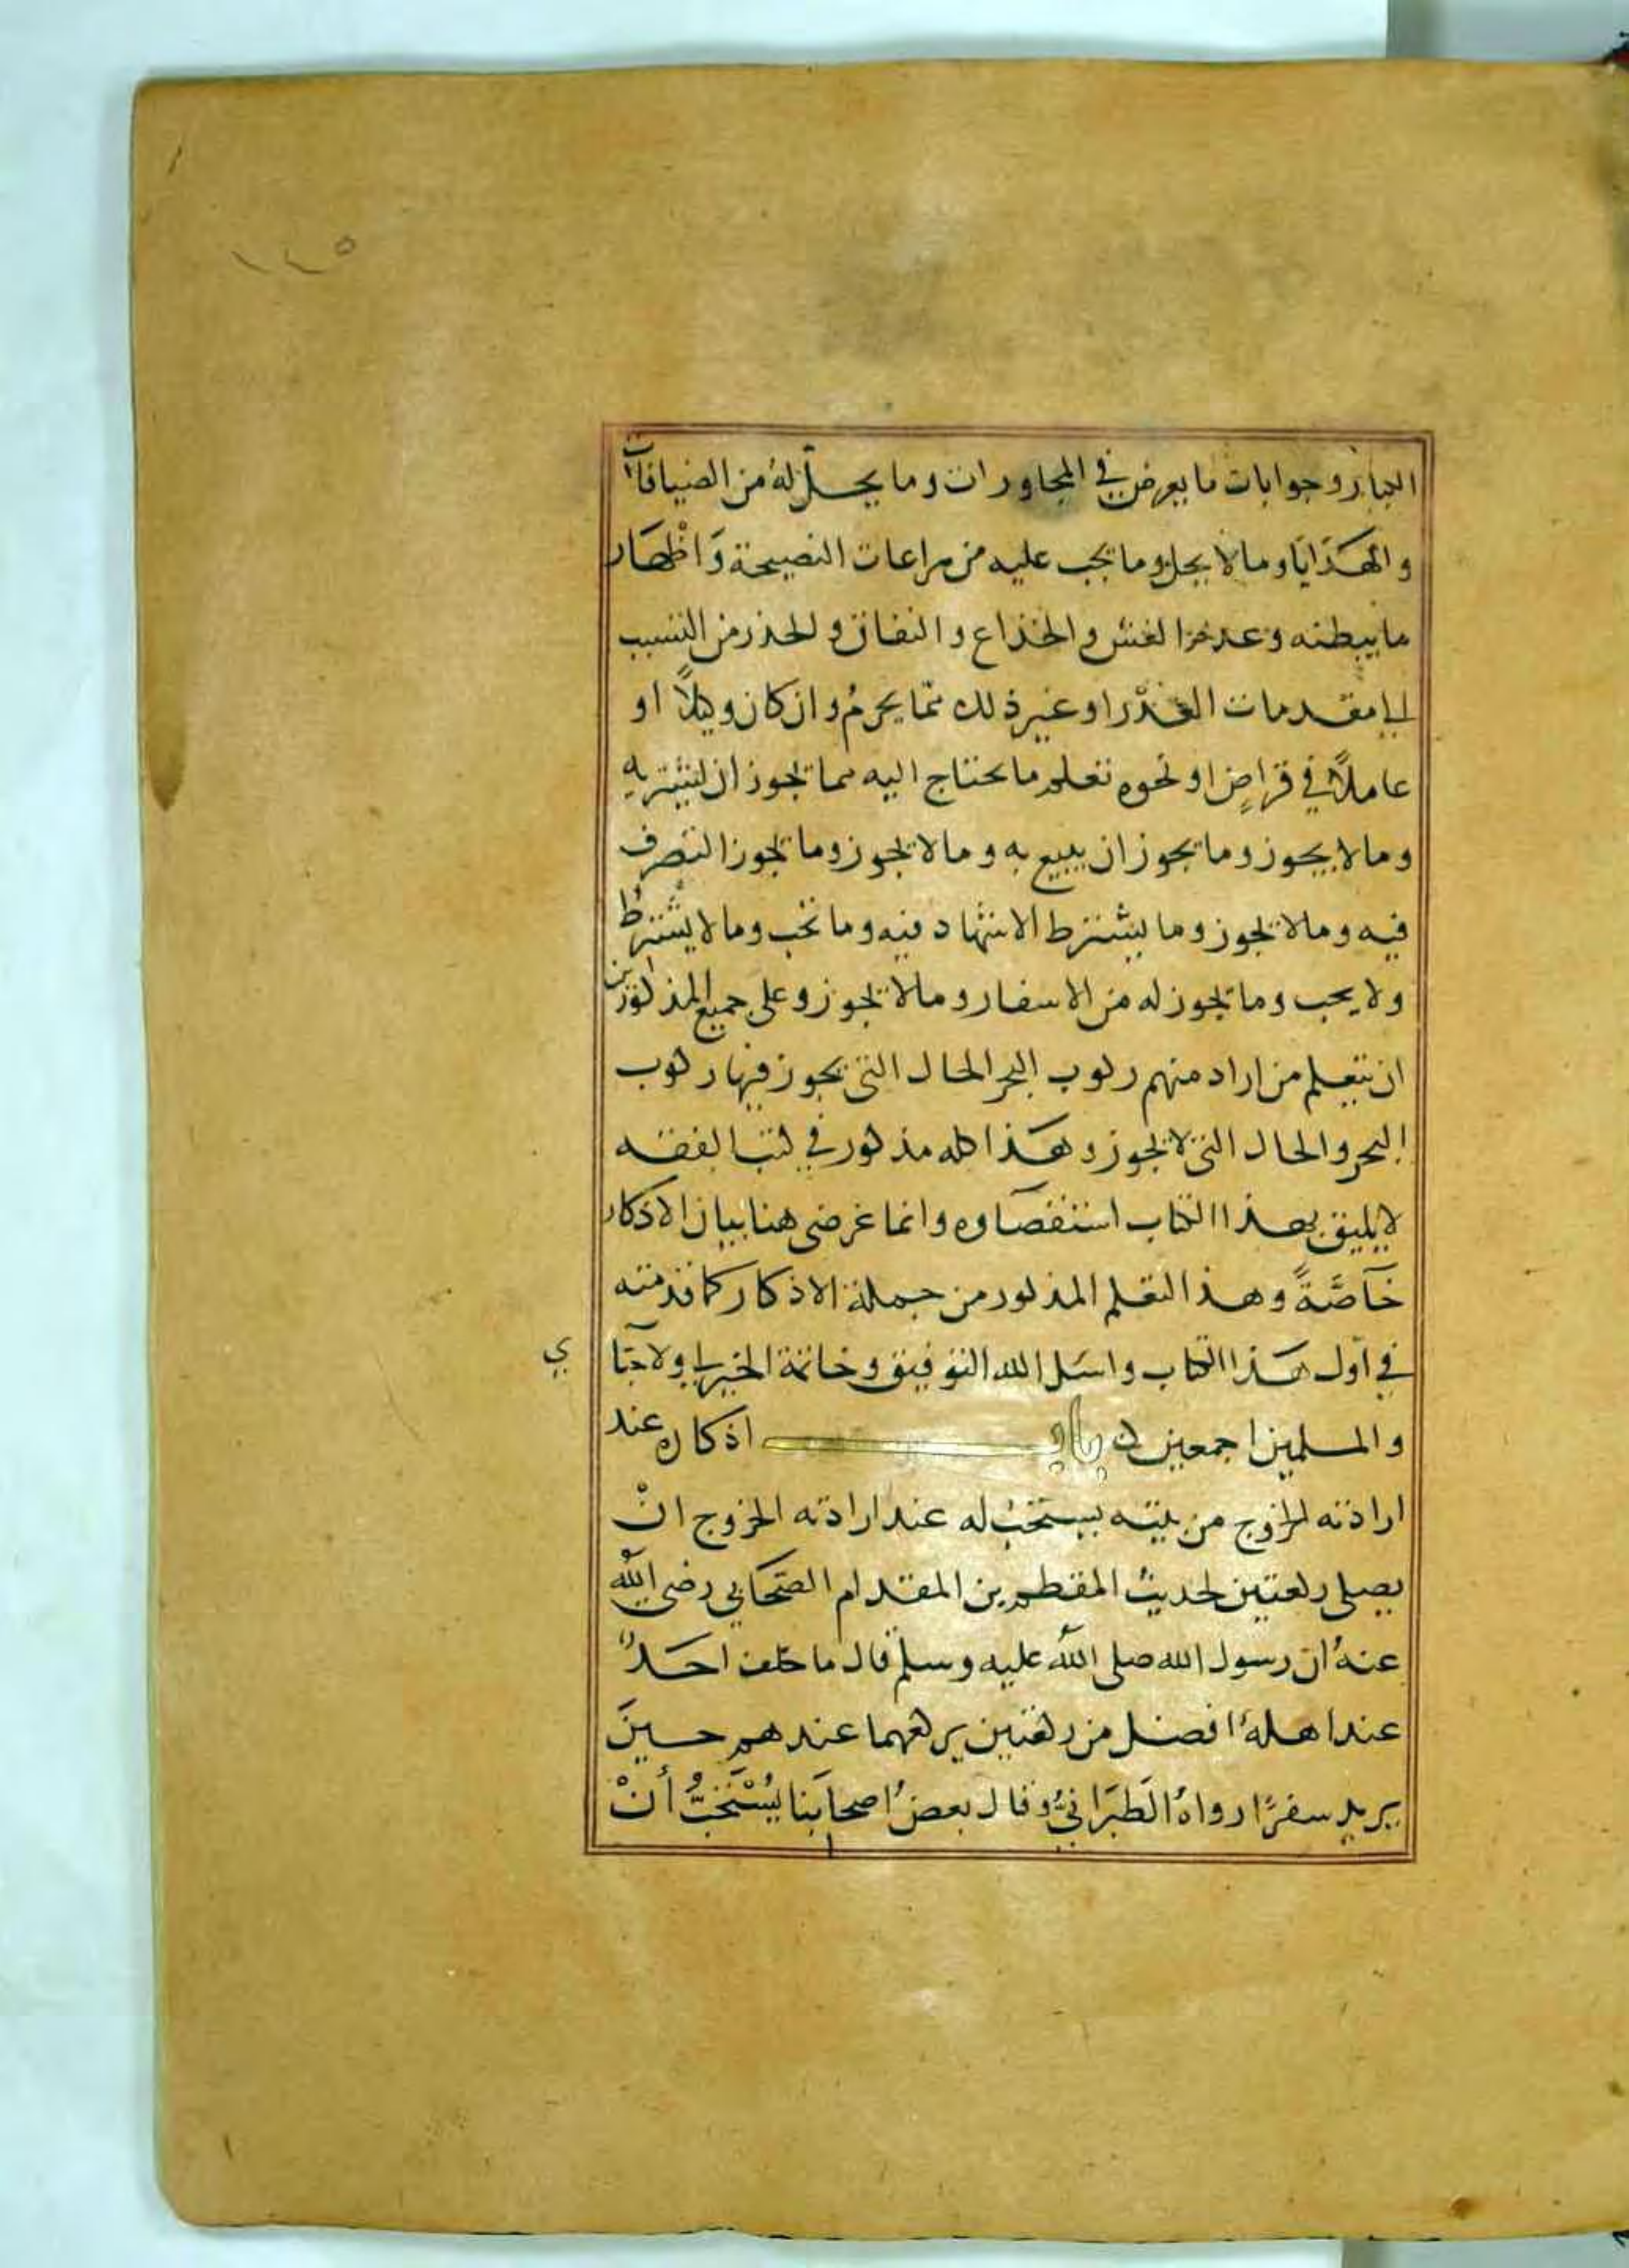 ١١٥
الكبار وجوابات ما يعرض في المحاورات وما يحلّ لهُ من الضيافات
والهَدَايَا وما لا يحل وما يجب عليه من مراعات النصيحة وَاظْهَار
ما يبطنه وعدم الغش والخداع والنفاق والحذر من التسبب
الى مقدمات الغدْر او غير ذلك ممّا يحرمُ وان كان وكيلاً او
عاملاً في قراضٍ او نحوه تعلم ما يحتاج اليه مما يجوز ان يشتريه
وما لا يجوز وما يجوز ان يبيع به وما لا يجوز وما يجوز التصرف
فيه وما لا يجوز وما يشترط الاشهاد فيه وما يجب وما لا يشترط
ولا يجب وما يجوز له من الاسفار وما لا يجوز وعلى جميع المذكورين
ان يتعلم من اراد منهم ركوب البحر الحال التي يجوز فيها ركوب
البحر والحال التي لا يجوز وهَذا كله مذكور في كتب الفقه
لا يليق بهذا الكتاب استقصاوه وانما غرضي هنا بيان الاذكار
خَآصَّةً وهذا التعلم المذكور من جملة الاذكار كما قدمته
في اول هَذا الكتاب واسَل الله التوفيق وخاتمة الخير لي ولاحبا
ي
والمسلمين اجمعين ن باب اذكاره عند
ارادته الخروج من بيته يستحبُ له عند ارادته الخروج انْ
يصلي ركعتين لحديث المقطم بن المقدام الصَّحَابي رضي اللّه
عنهُ ان رسول الله صلى اللّه عليه وسلم قال ما خلف احَدٌ
عند اهلهُ افضل من ركعتين يركعهما عندهم حينَ
يريد سفرًا رواهُ الطَبَرَانيُّ وقال بعضُ اصحابَنا يُسْتَحَبُّ أنْ